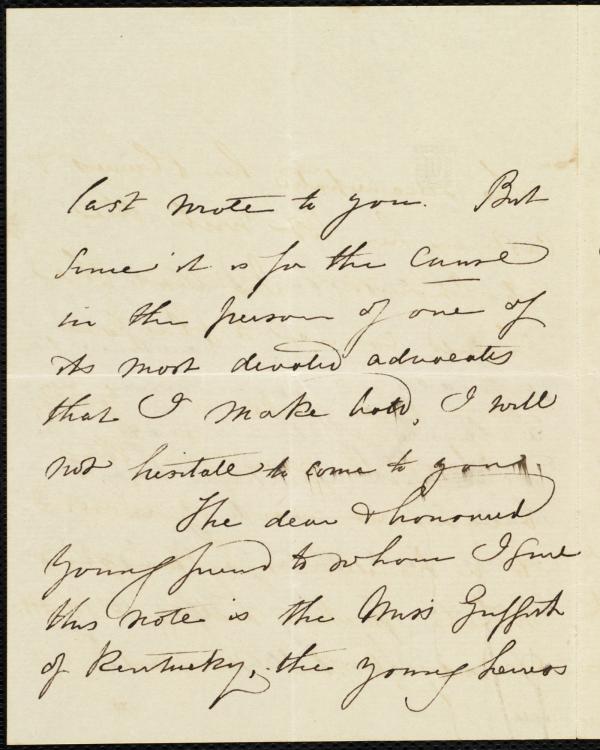 last note to you. But
Since it is for the cause
in the person of one of
its most devoted advocates
that I make bold, I will
not hesitate to come to you.
The dear & honoured
young friend to whom I give
this note is the Miss Griffith
of Kentucky, the young heiress